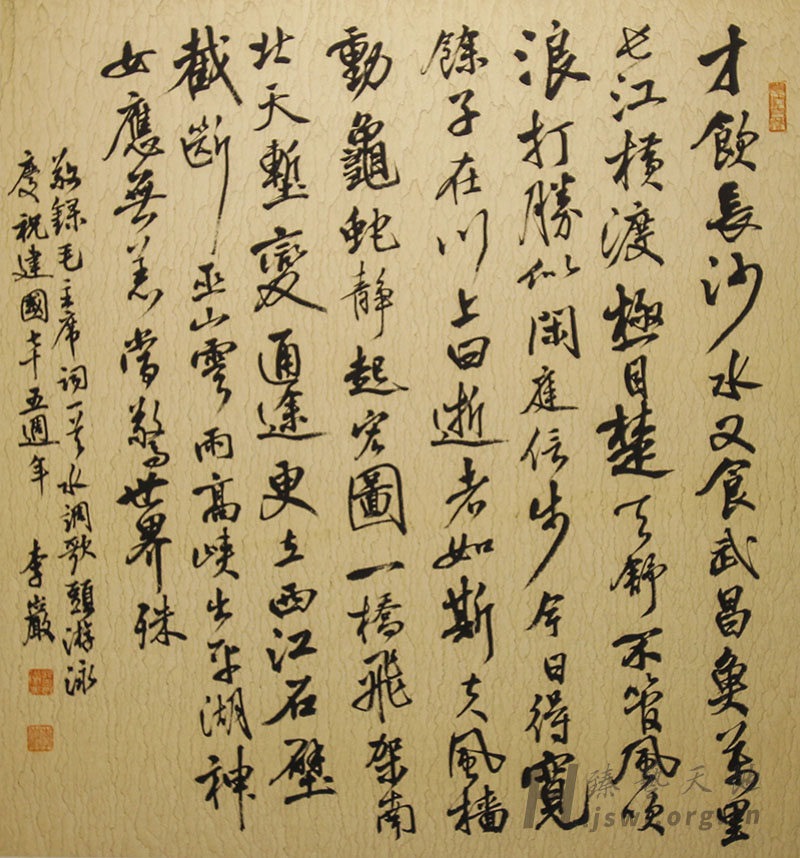 才飲長沙水又食武昌魚萬里
長江橫渡極目楚天舒不管風吹
浪打勝似閑庭信步今日得寬
餘子在川上曰逝者如斯夫風檣
動龜蛇静起宏圖一橋飛架南
北天塹變通途更立西江石壁
截斷巫山雲雨高峽出平湖神
女應無恙當驚世界殊
敬録毛主席詞一首水調歌頭游泳
慶祝建國七十五週年 李巖